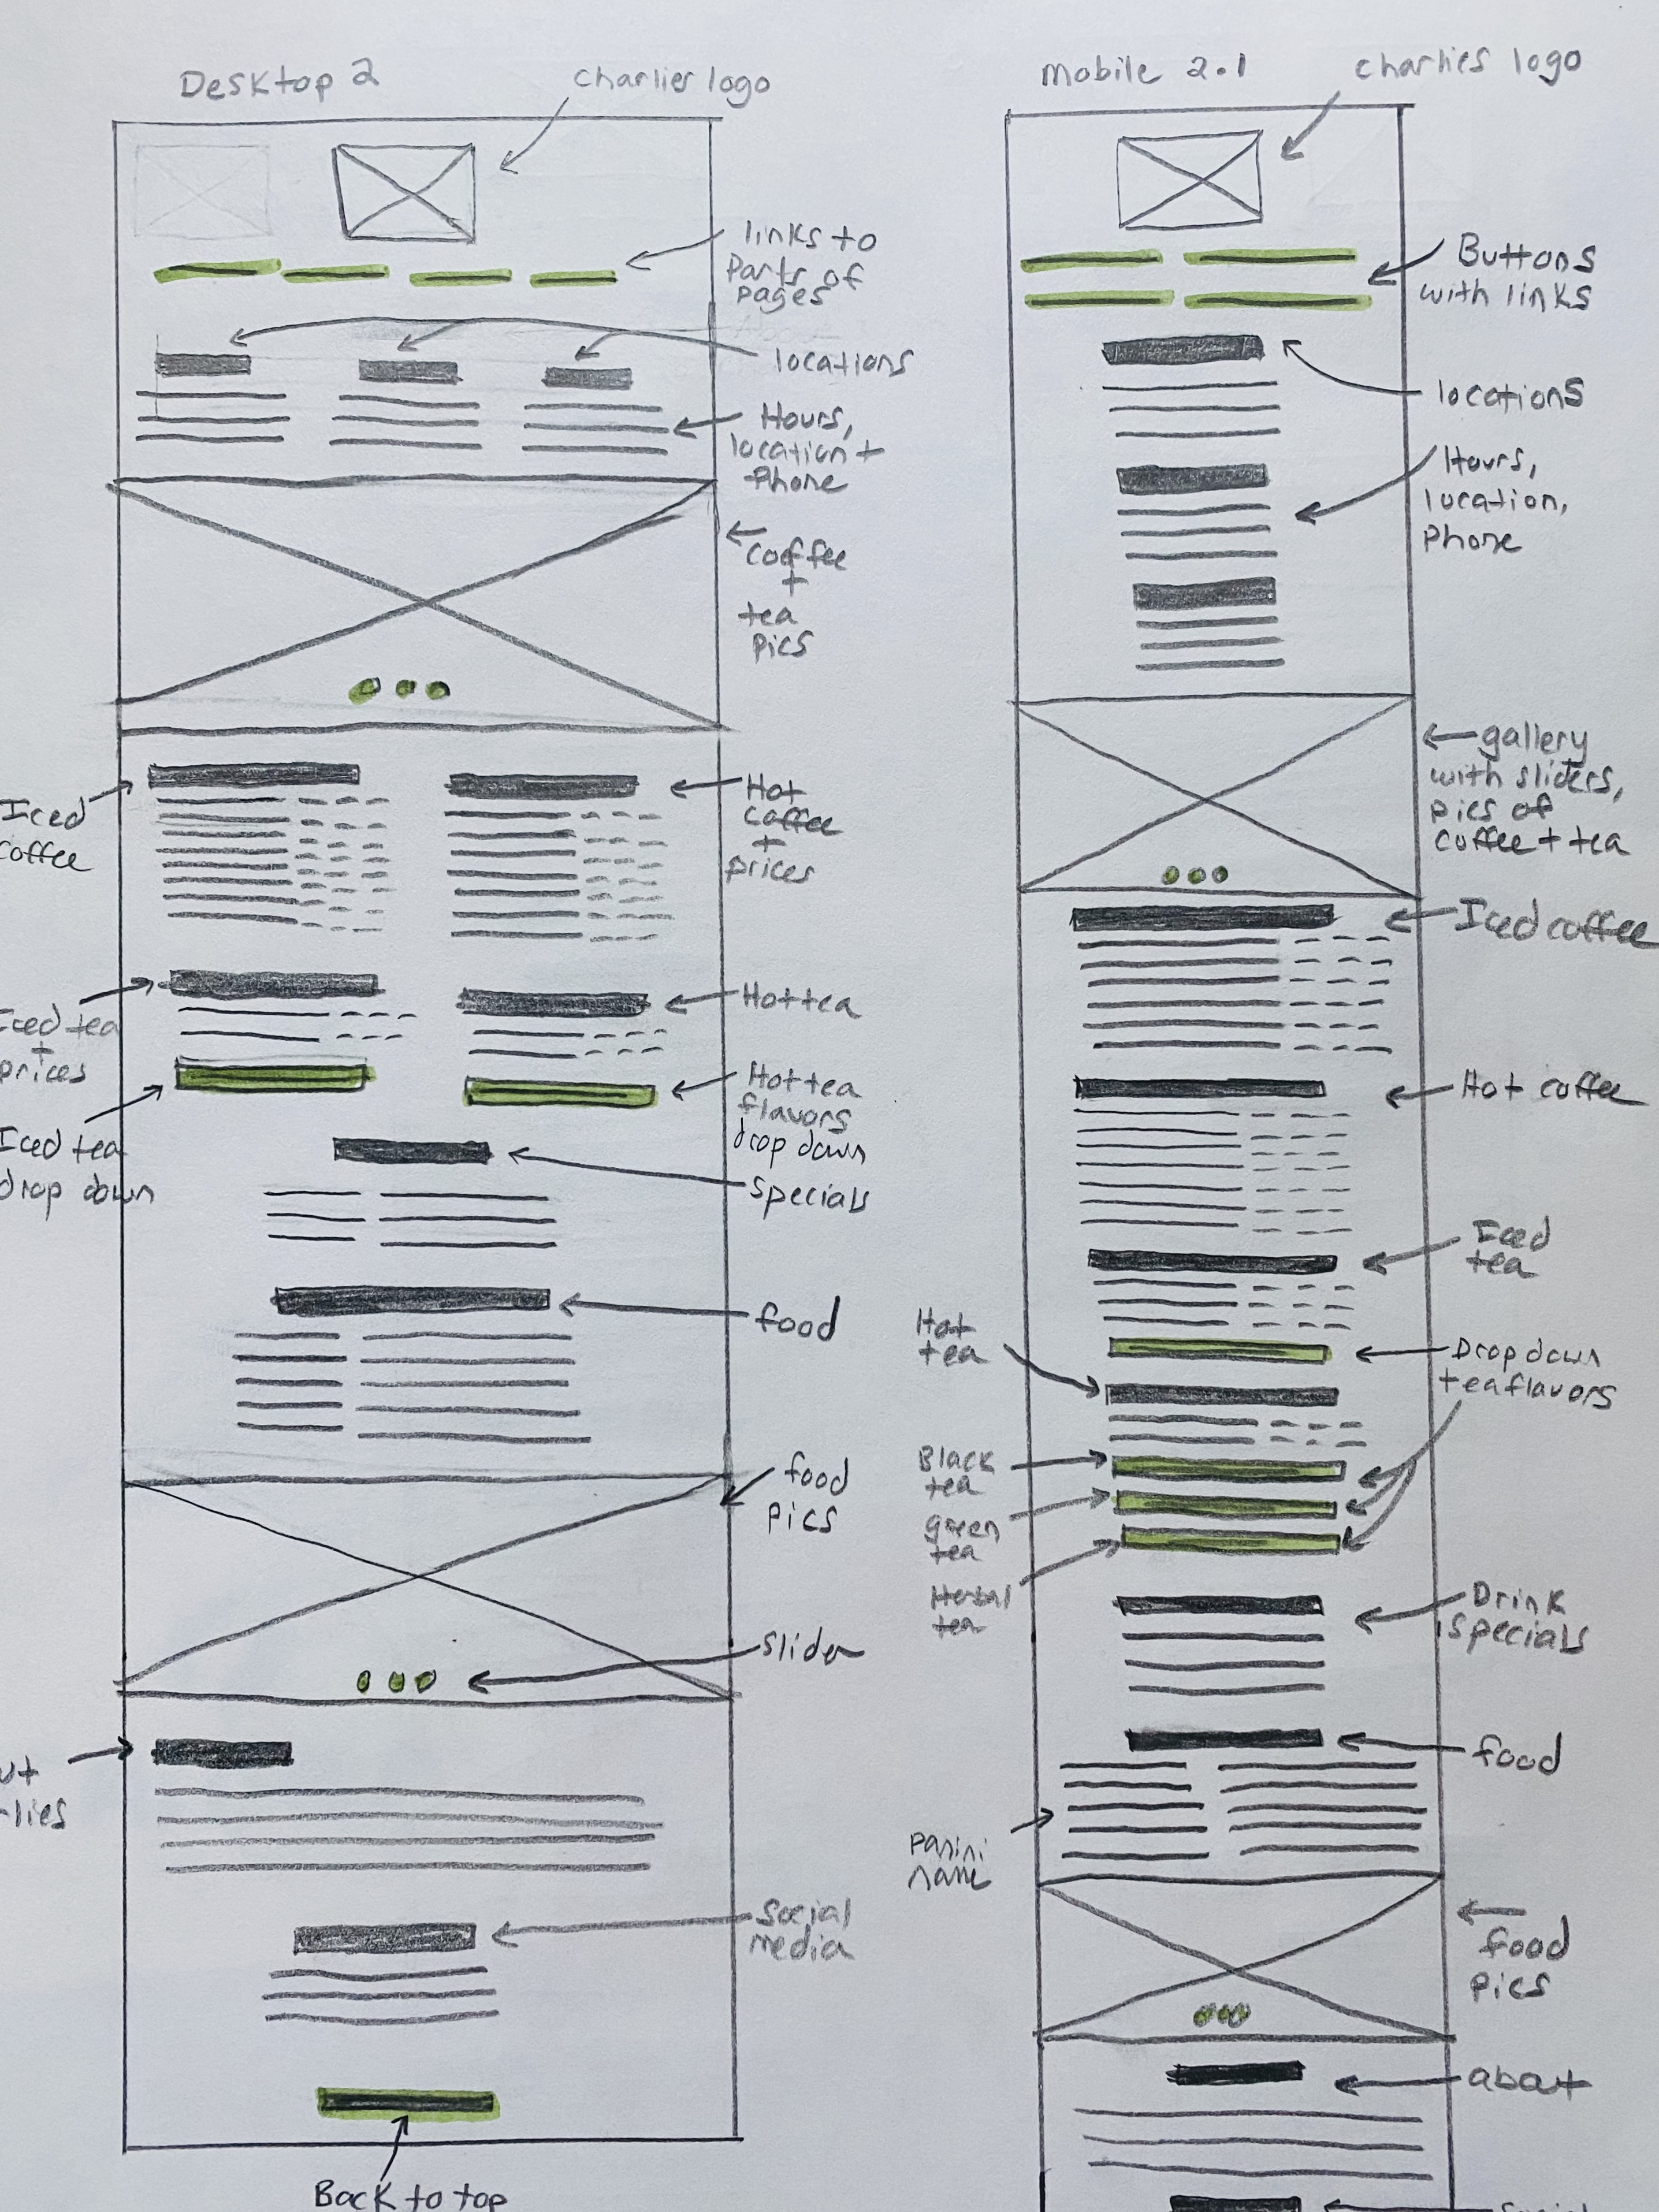 Desktop 2
charlies logo
links to
parts of
pages
locations
Hours,
location +
Phone
coffee
+
tea
pics
Iced
coffee
Hot
coffee
+
prices
Iced tea
+
prices
Hot tea
Iced tea
drop down
Hot tea
flavors
drop down
specials
food
food
pics
slider
ut
rlies
Social
media
Back to top
mobile 2.1
charlies logo
Buttons
with links
locations
Hours,
location,
Phone
gallery
with sliders,
pics of
coffee + tea
Iced coffee
Hot coffee
Iced
tea
Drop down
tea flavors
Hot
tea
Black
tea
green
tea
Herbal
tea
Drink
specials
food
panini
name
food
pics
about
Social